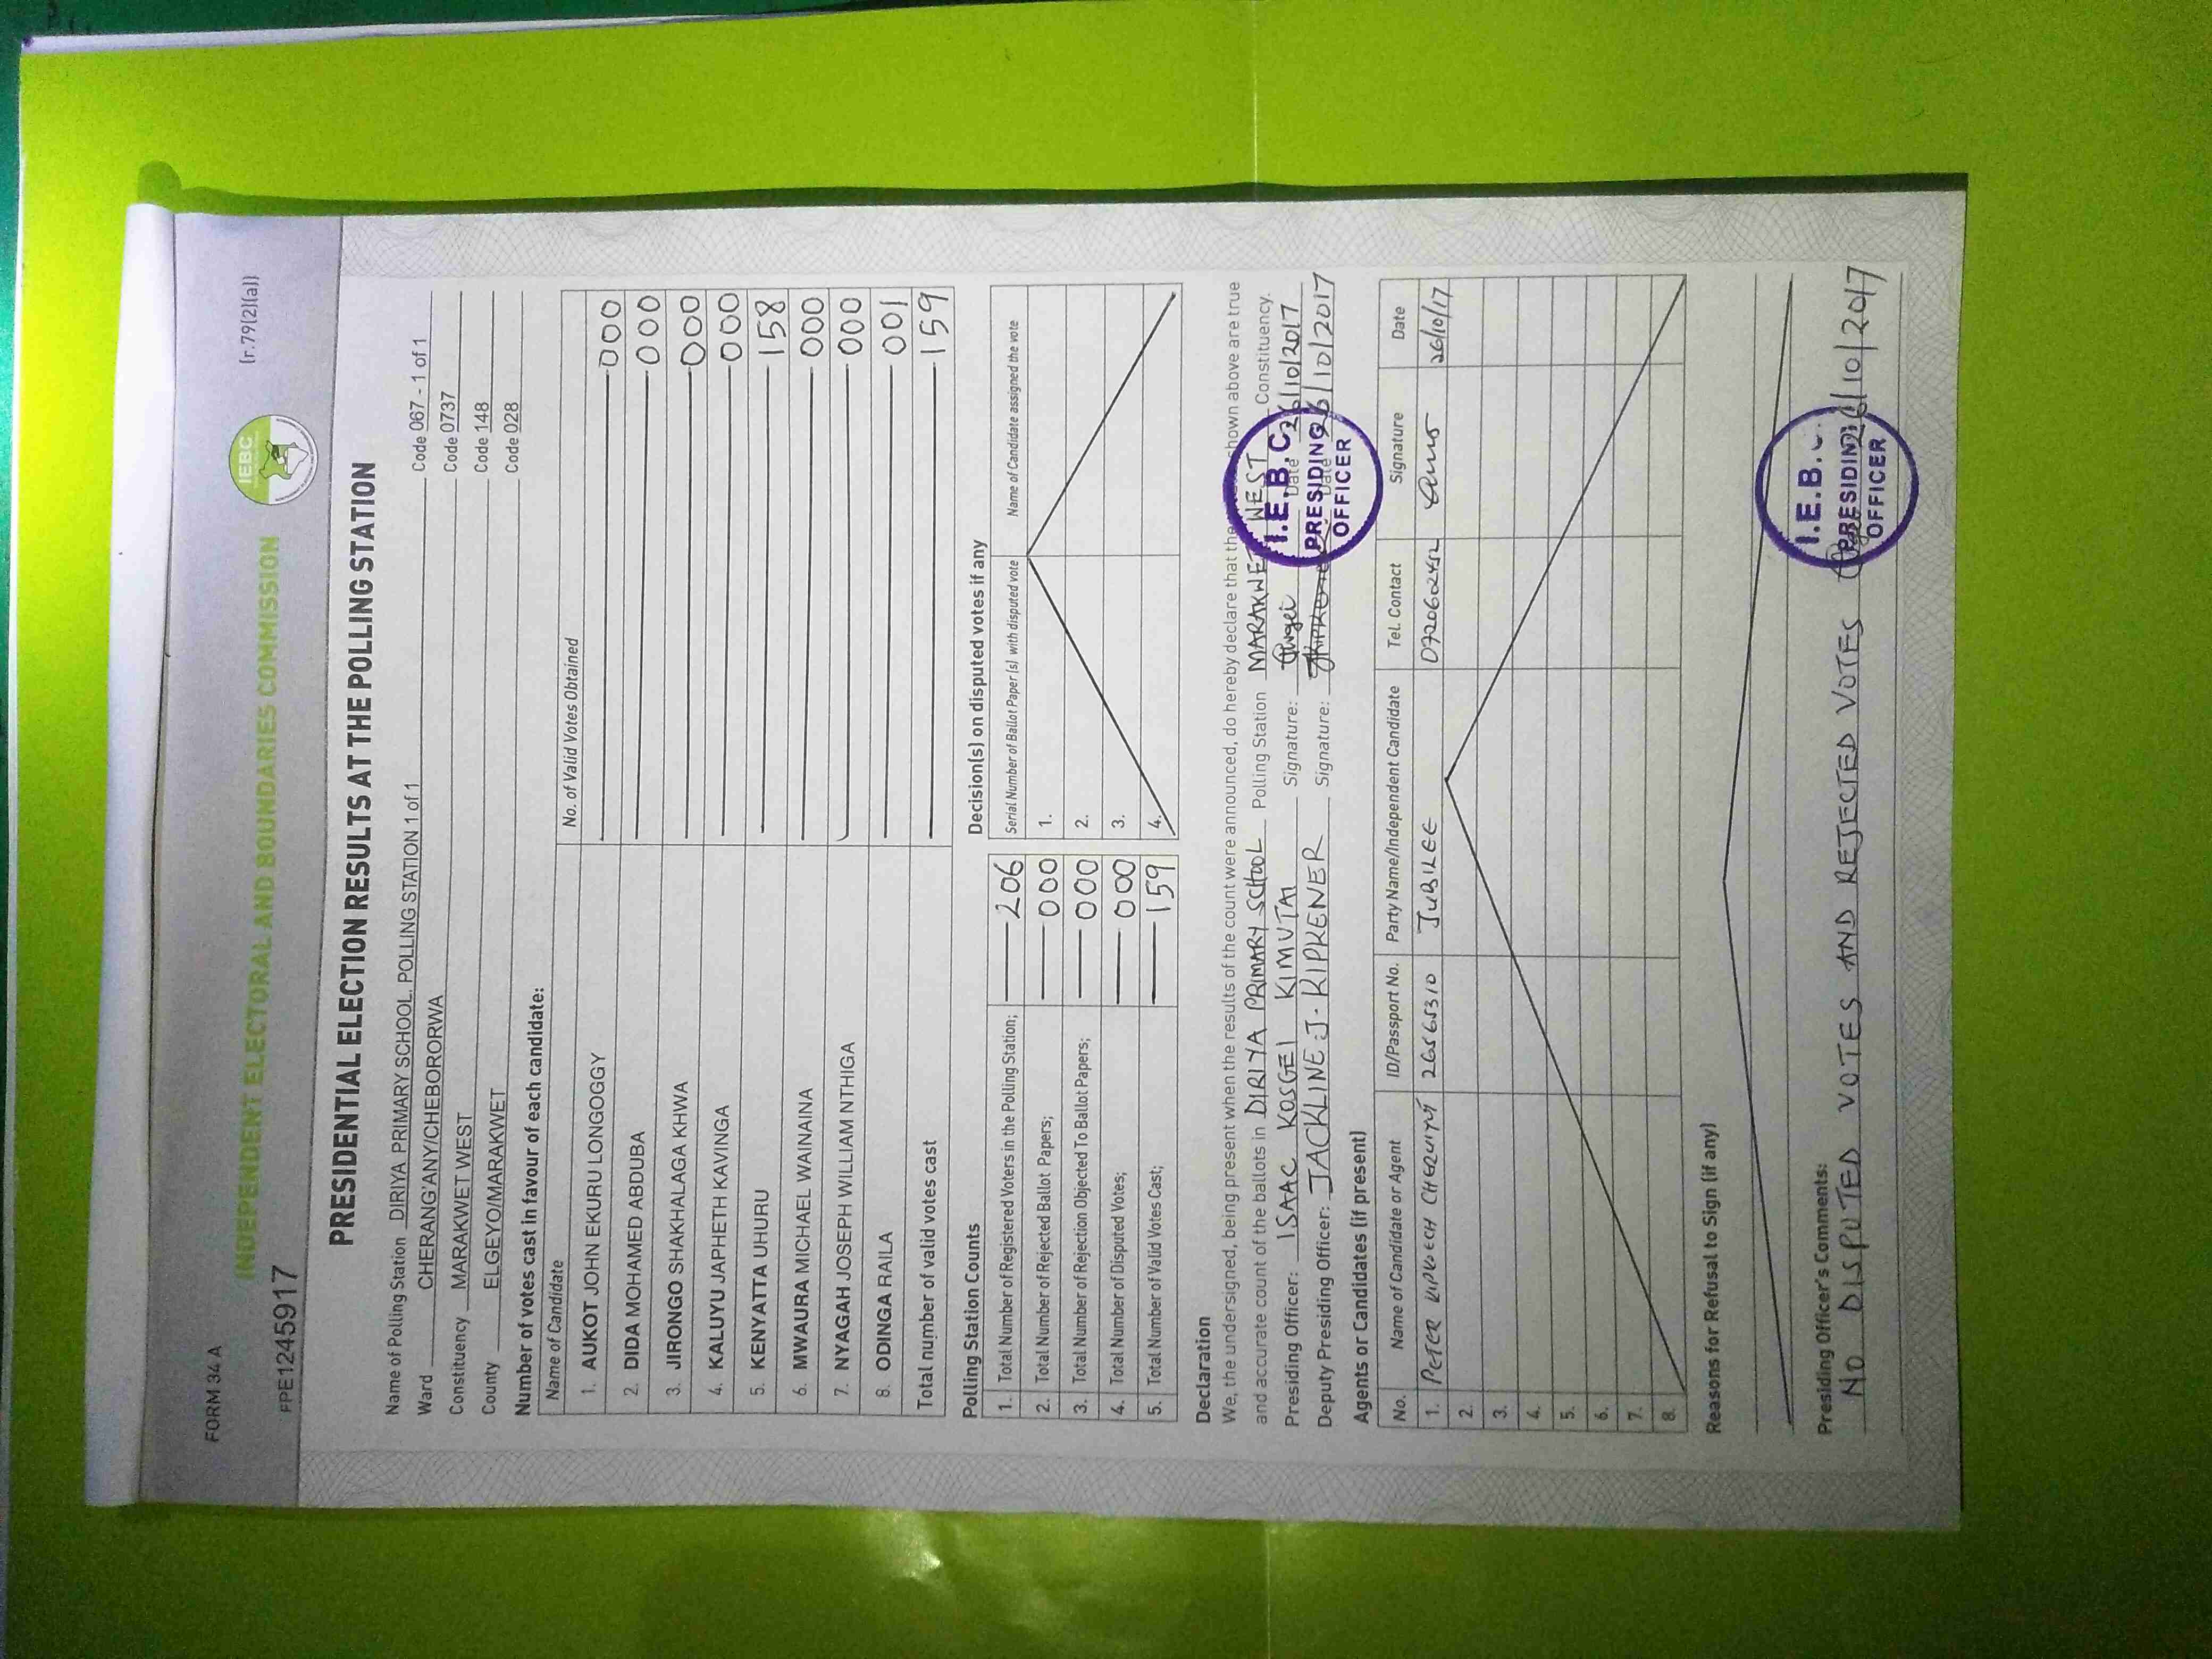 FORM 34 A
(r.79(2)(a))
IEBC
INDEPENDENT ELECTORAL AND BOUNDARIES COMMISSION
FPE12459​17
PRESIDENTIAL ELECTION RESULTS AT THE POLLING STATION
Name of Polling Station DIRIYA PRIMARY SCHOOL, POLLING STATION 1 of 1 Code 067 - 1 of 1
Ward CHERANG'ANY/CHEBORORWA Code 0737
Constituency MARAKWET WEST Code 148
County ELGEYO/MARAKWET Code 028
Number of votes cast in favour of each candidate:
Name of Candidate No. of Valid Votes Obtained
1. AUKOT JOHN EKURU LONGOGGY 000
2. DIDA MOHAMED ABDUBA 000
3. JIRONGO SHAKHALAGA KHWA 000
4. KALUYU JAPHETH KAVINGA 000
5. KENYATTA UHURU 158
6. MWAURA MICHAEL WAINAINA 000
7. NYAGAH JOSEPH WILLIAM NTHIGA 000
8. ODINGA RAILA 001
Total number of valid votes cast 159
Polling Station Counts
1. Total Number of Registered Voters in the Polling Station; 206
2. Total Number of Rejected Ballot Papers; 000
3. Total Number of Rejection Objected To Ballot Papers; 000
4. Total Number of Disputed Votes; 000
5. Total Number of Valid Votes Cast; 159
Decision(s) on disputed votes if any
Serial Number of Ballot Paper (s) with disputed vote Name of Candidate assigned the vote
1.
2.
3.
4.
Declaration
We, the undersigned, being present when the results of the count were announced, do hereby declare that the shown above are true
and accurate count of the ballots in DIRIYA PRIMARY SCHOOL Polling Station MARAKWET WEST Constituency.
Presiding Officer: ISAAC KOSGEI KIMUTAI Signature: Date 26/10/2017
Deputy Presiding Officer: JACKLINE J. KIPKENER Signature: Date 26/10/2017
I.E.B.C
PRESIDING
OFFICER
Agents or Candidates (if present)
No. Name of Candidate or Agent ID/Passport No. Party Name/Independent Candidate Tel. Contact Signature Date
1. PETER KIPKECH 26565310 JUBILEE 0720602452 26/10/17
2.
3.
4.
5.
6.
7.
8.
Reasons for Refusal to Sign (if any)
Presiding Officer's Comments:
NO DISPUTED VOTES AND REJECTED VOTES 26/10/2017
I.E.B.C
PRESIDING
OFFICER